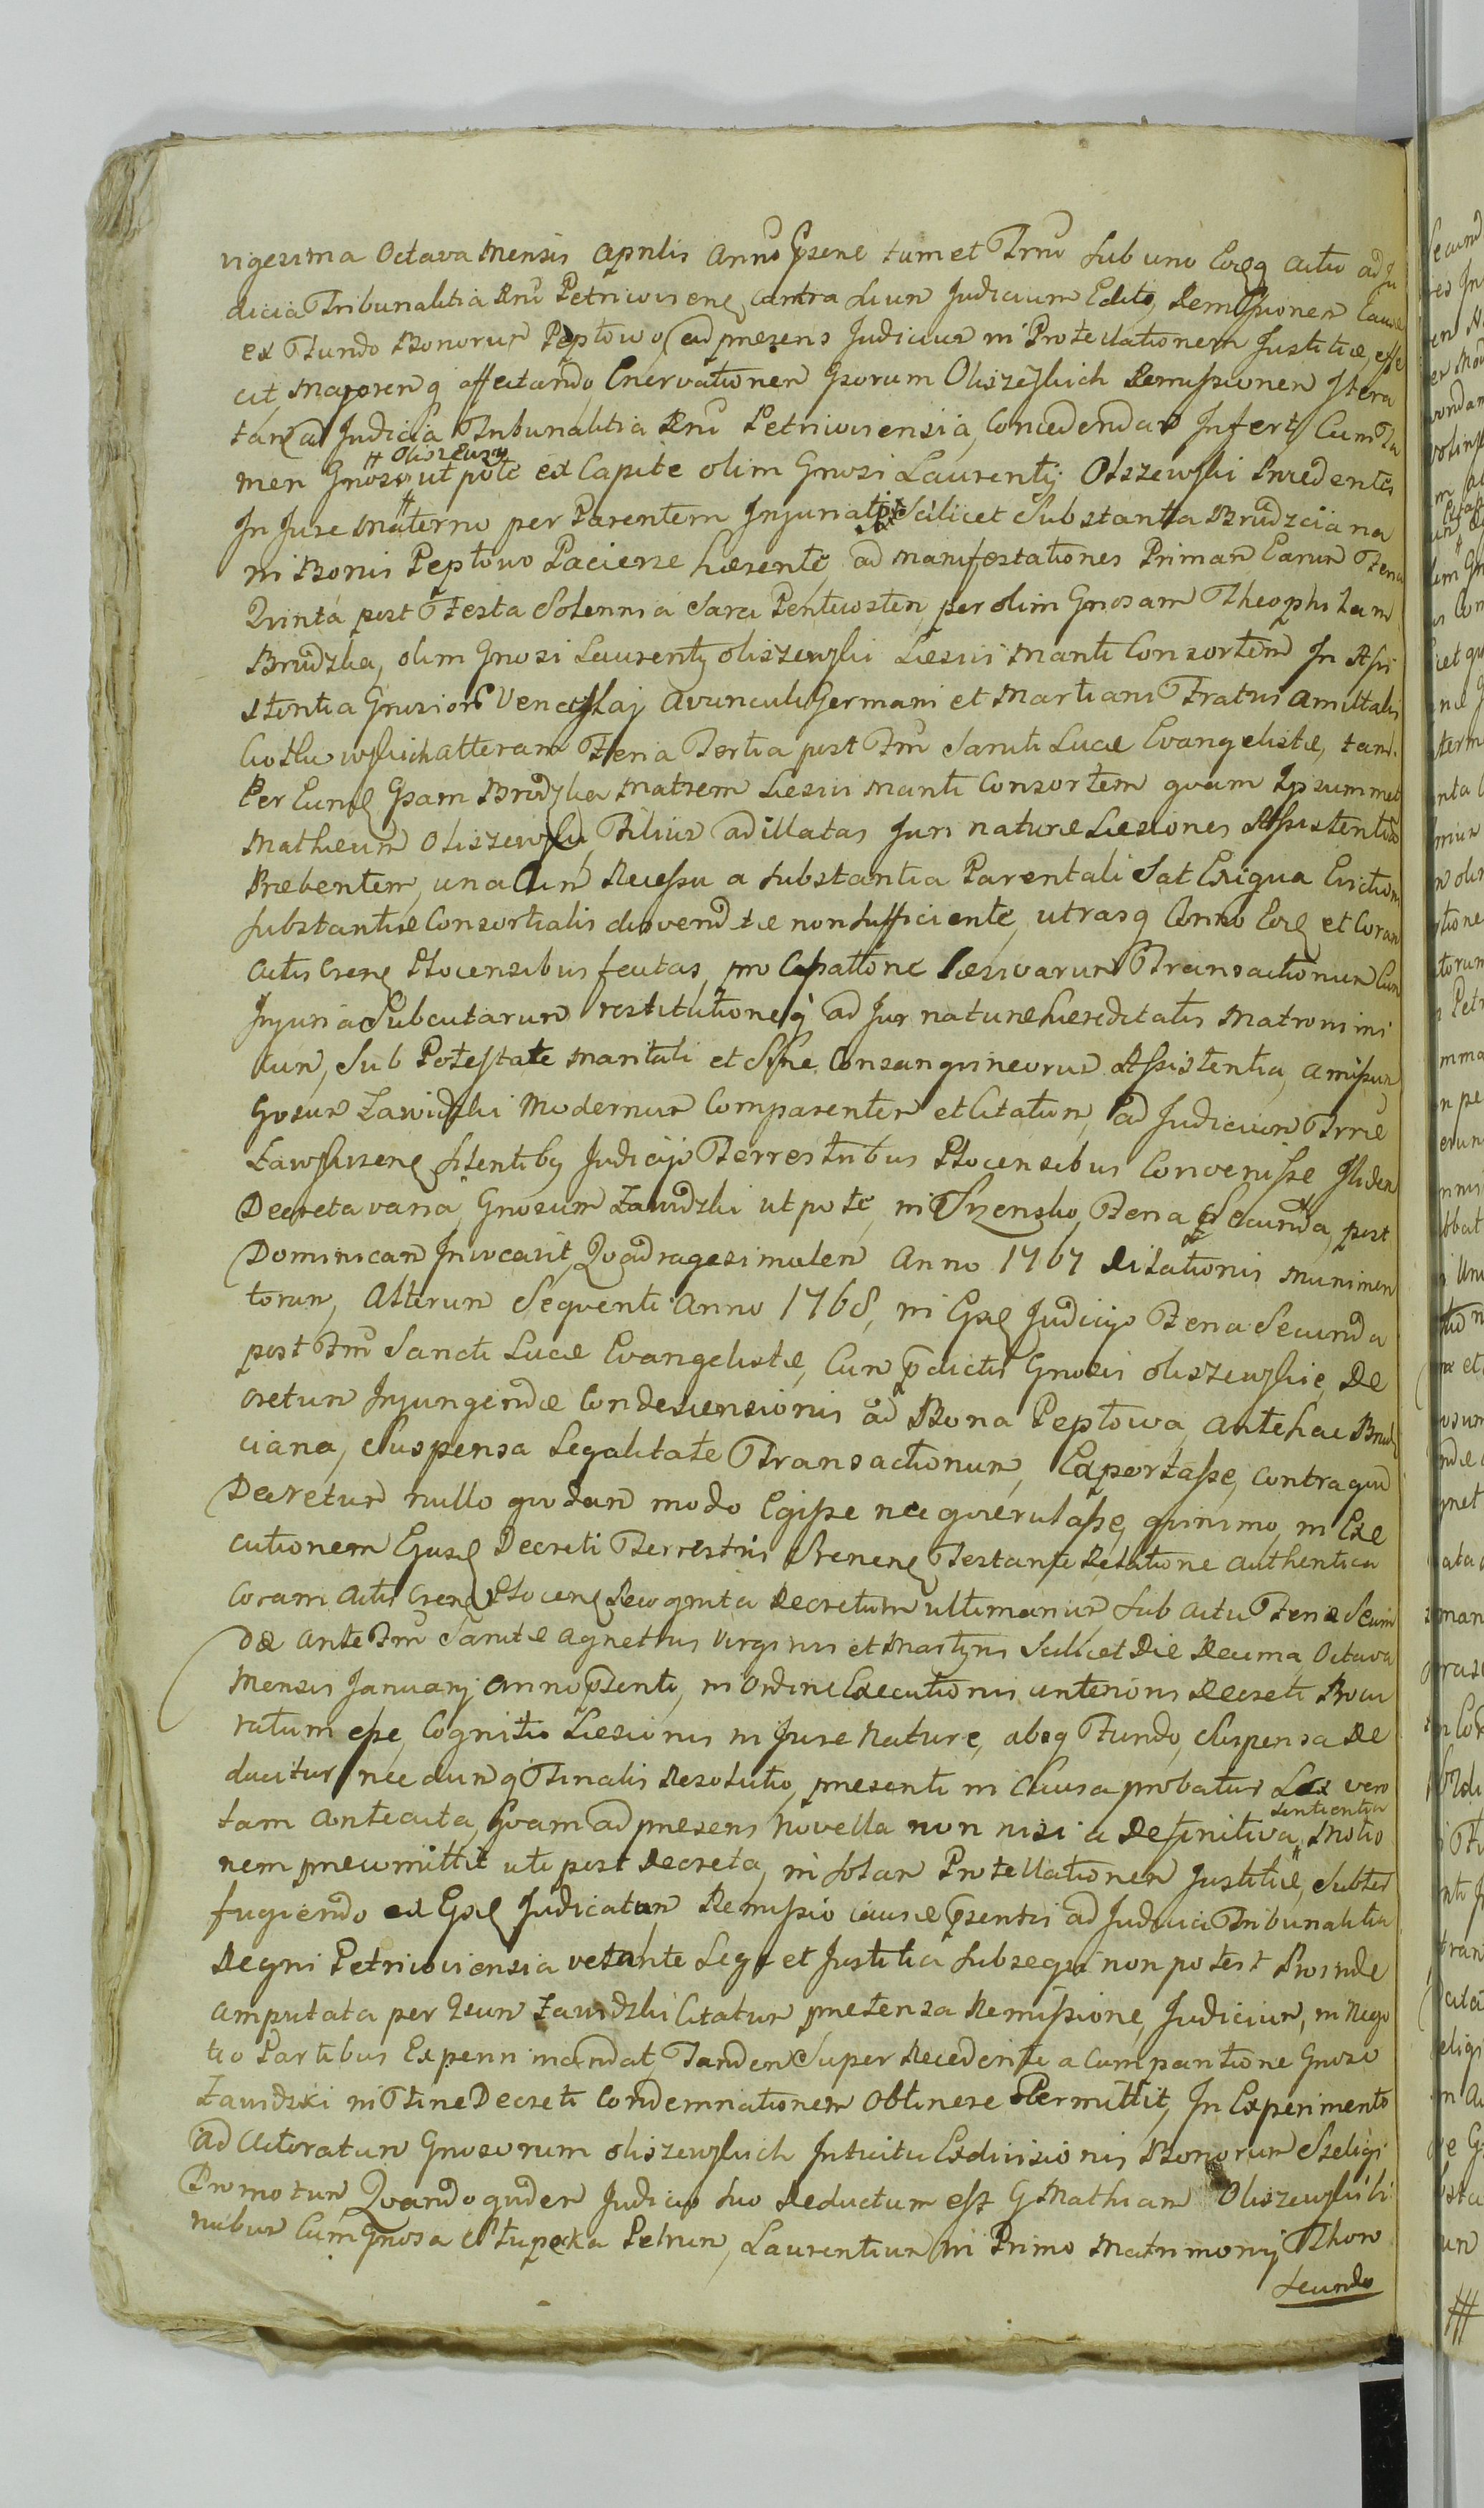 vigesima Octava Mensis Aprilis Anno Psenti tum et Trni sub uno Eodq actu ad Ju
dicia Tribunalitia Rni Petricoviens contra suum Judicium Edito, Remissionem Causae
ex Fundo Bonorum Peptowo, ad praesens Judicium in Protelationem Justitiae, effe
cit, Majoremq affectando Enervationem Gsorum Olszewskich Remissionem Itera
tam ad Judicia Tribunalitia Rni Petricoviensia, Concedendam Infert, Cum Ta
men Gnosi # Olszewscy ut pote ex Capite olim Gnosi Laurentij Olszewski Procedentes
In Jure Materno per Parentem Injuriati Scilicet Substantia Brudzciana
in Bonis Peptowo Pacierze haerente, ad manifestationes Primam Earum Feria
Quinta post Festa Solennia Sacri Pentecosten, per olim Gnosam Theophilam
Brudzka, olim Gnosi Laurentij Olszewski Laesivi Mariti Consortem In Assi
stentia Gnosior Venceslaj Avunculi Germani et Martiani Fratris Amittalis
alteram Feria Tertia post Fm Sancti Lucae Evangelistae, tam
Per Eund Gsam Brudzka Matrem Laesivi Mariti Consortem quam Ipsummet
Mathaeum Olszewski, Filium ad illatas Juri naturae Laesiones Assistentiam
Praebentem, una Cum Recessu a substantia Parentali Sat Exigua Eviction
substantiae Consortialis non sufficiente, utrasq Anno Eod et Coram
Actis Crens Plocensibus factas, pro Cassatione Laesivarum Transactionum Cum
Injuria Subcutarum restitutioneq ad Jur naturae haereditatis Matrimoni
um, Sub Potestate Maritali et Sine Consanguineorum Assistentia, amissum
Gosum Zawidzki Modernum Comparentem et Citatum, ad Judicium Trrie
Zawskrzens sitentibq Judicijs Terrestribus Plocensibus Convenisse Ibidem
Decreta varia, Gnosum Zawidzki ut pote, in Szrensko, Feria Secunda, post
Dominicam Invocavit Quadragesimalem Anno 1767 Dilationis Munimen
torum, Alterum Sequenti Anno 1768, in Eod Judicijs Feria Secunda
post Fm Sancti Lucae Evangelistae, Cum pdictis Gnosis Olszewskie, De
cretum Injungendae Condescensionis ad Bona Peptowa, antehac Brudz
ciana, Suspensa Legalitate Transactionum, Exportasse, Contra quod
Decretum nullo quodam modo Egisse nec querulasse, quinimo, in Exe
cutionem Ejusd Decreti Terrestris Srenens Testante Relatione authentica
Coram Actis Crens Plocens Recognita Decretum ultimarium sub Actu Feriae Secun
dae Ante Fm Sanctae Agnethis Virginis et Martyris Scilicet Die Decima Octava
Mensis Januarij Anno Psenti, in Ordine Executionis anterioris Decreti Procu
ratum esse, Cognitio Laesionis in Jure Naturae, absq Fundo, Suspensa De
ducitur, nec dumq Finalis Resolutio, praesenti in Causa probatur Lex vero
tam anteacta, quam ad praesens Novella non nisi a Definitiva sententia Motio
nem praecunittit uti post Decreta, in solam Protellationem Justitiae, Subter
fugiendo ex Eod Judicatum Remissio causae psentis ad Judicia Tribunalitia
Regni Petricoviensia vetante Lege et Justitia subsequi non potest Proinde
Amputata per Gsum Zawidzki Citatum praetensa Remissione, Judicium, in Nego
tio Partibus Experiri mandat, Tandem Super Recedente a Compartione Gnoso
Zawidzki in Fine Decreti Condemnationem Obtinere Permittit, In Experimento
ad Actoratum Gnosorum Olszewskich Intuitu Exdivisionis Bonorum Szeligi
Promotum Quandoquidem Judicio suo Deductum est G Mathiam Olszewski li
nibus Cum Gnosa Stupska Petrum, Laurentium in Primo Matrimonij Thoro
secundo